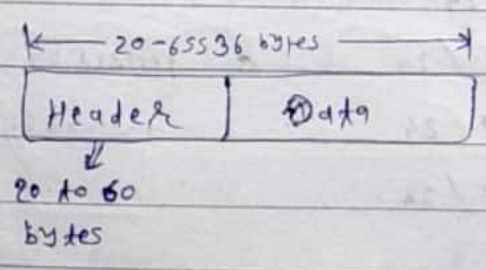 20-65536 bytes
Header Data
20 to 60
bytes